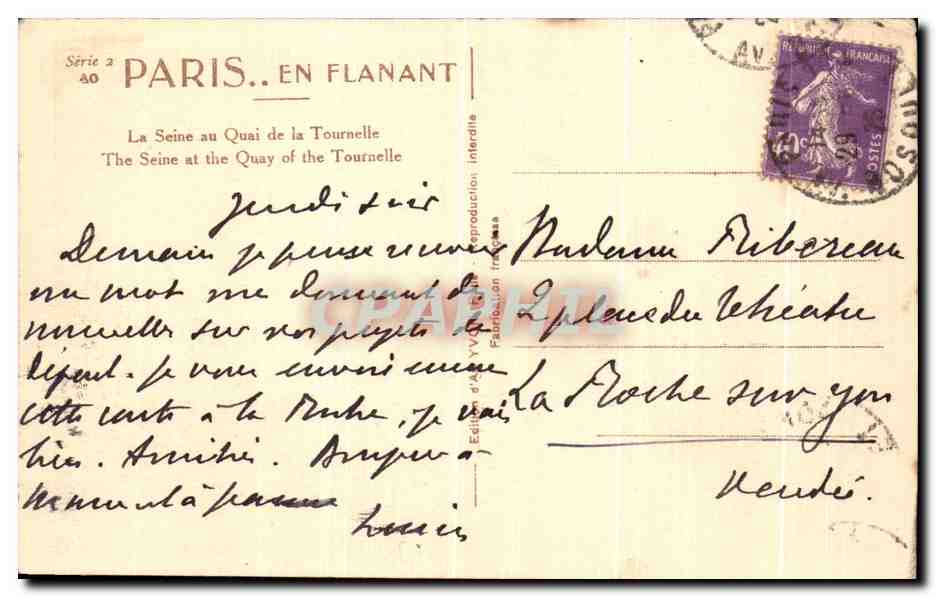 Série 2
40
PARIS.. EN FLANANT
La Seine au Quai de la Tournelle
The Seine at the Quay of the Tournelle
Jeudi soir
Demain je pense recevoir
un mot me donnant des
nouvelles sur vos projets de
départ. Je vous envoie
cette carte à la Roche, je vais
bien. Amitiés.
Louis
Edition d'Art YVON Reproduction interdite
Fabrication française
REPUBLIQUE FRANÇAISE
40c
POSTES
Madame Ribereau
2 place du théâtre
La Roche sur yon
Vendée.
CPARHIL